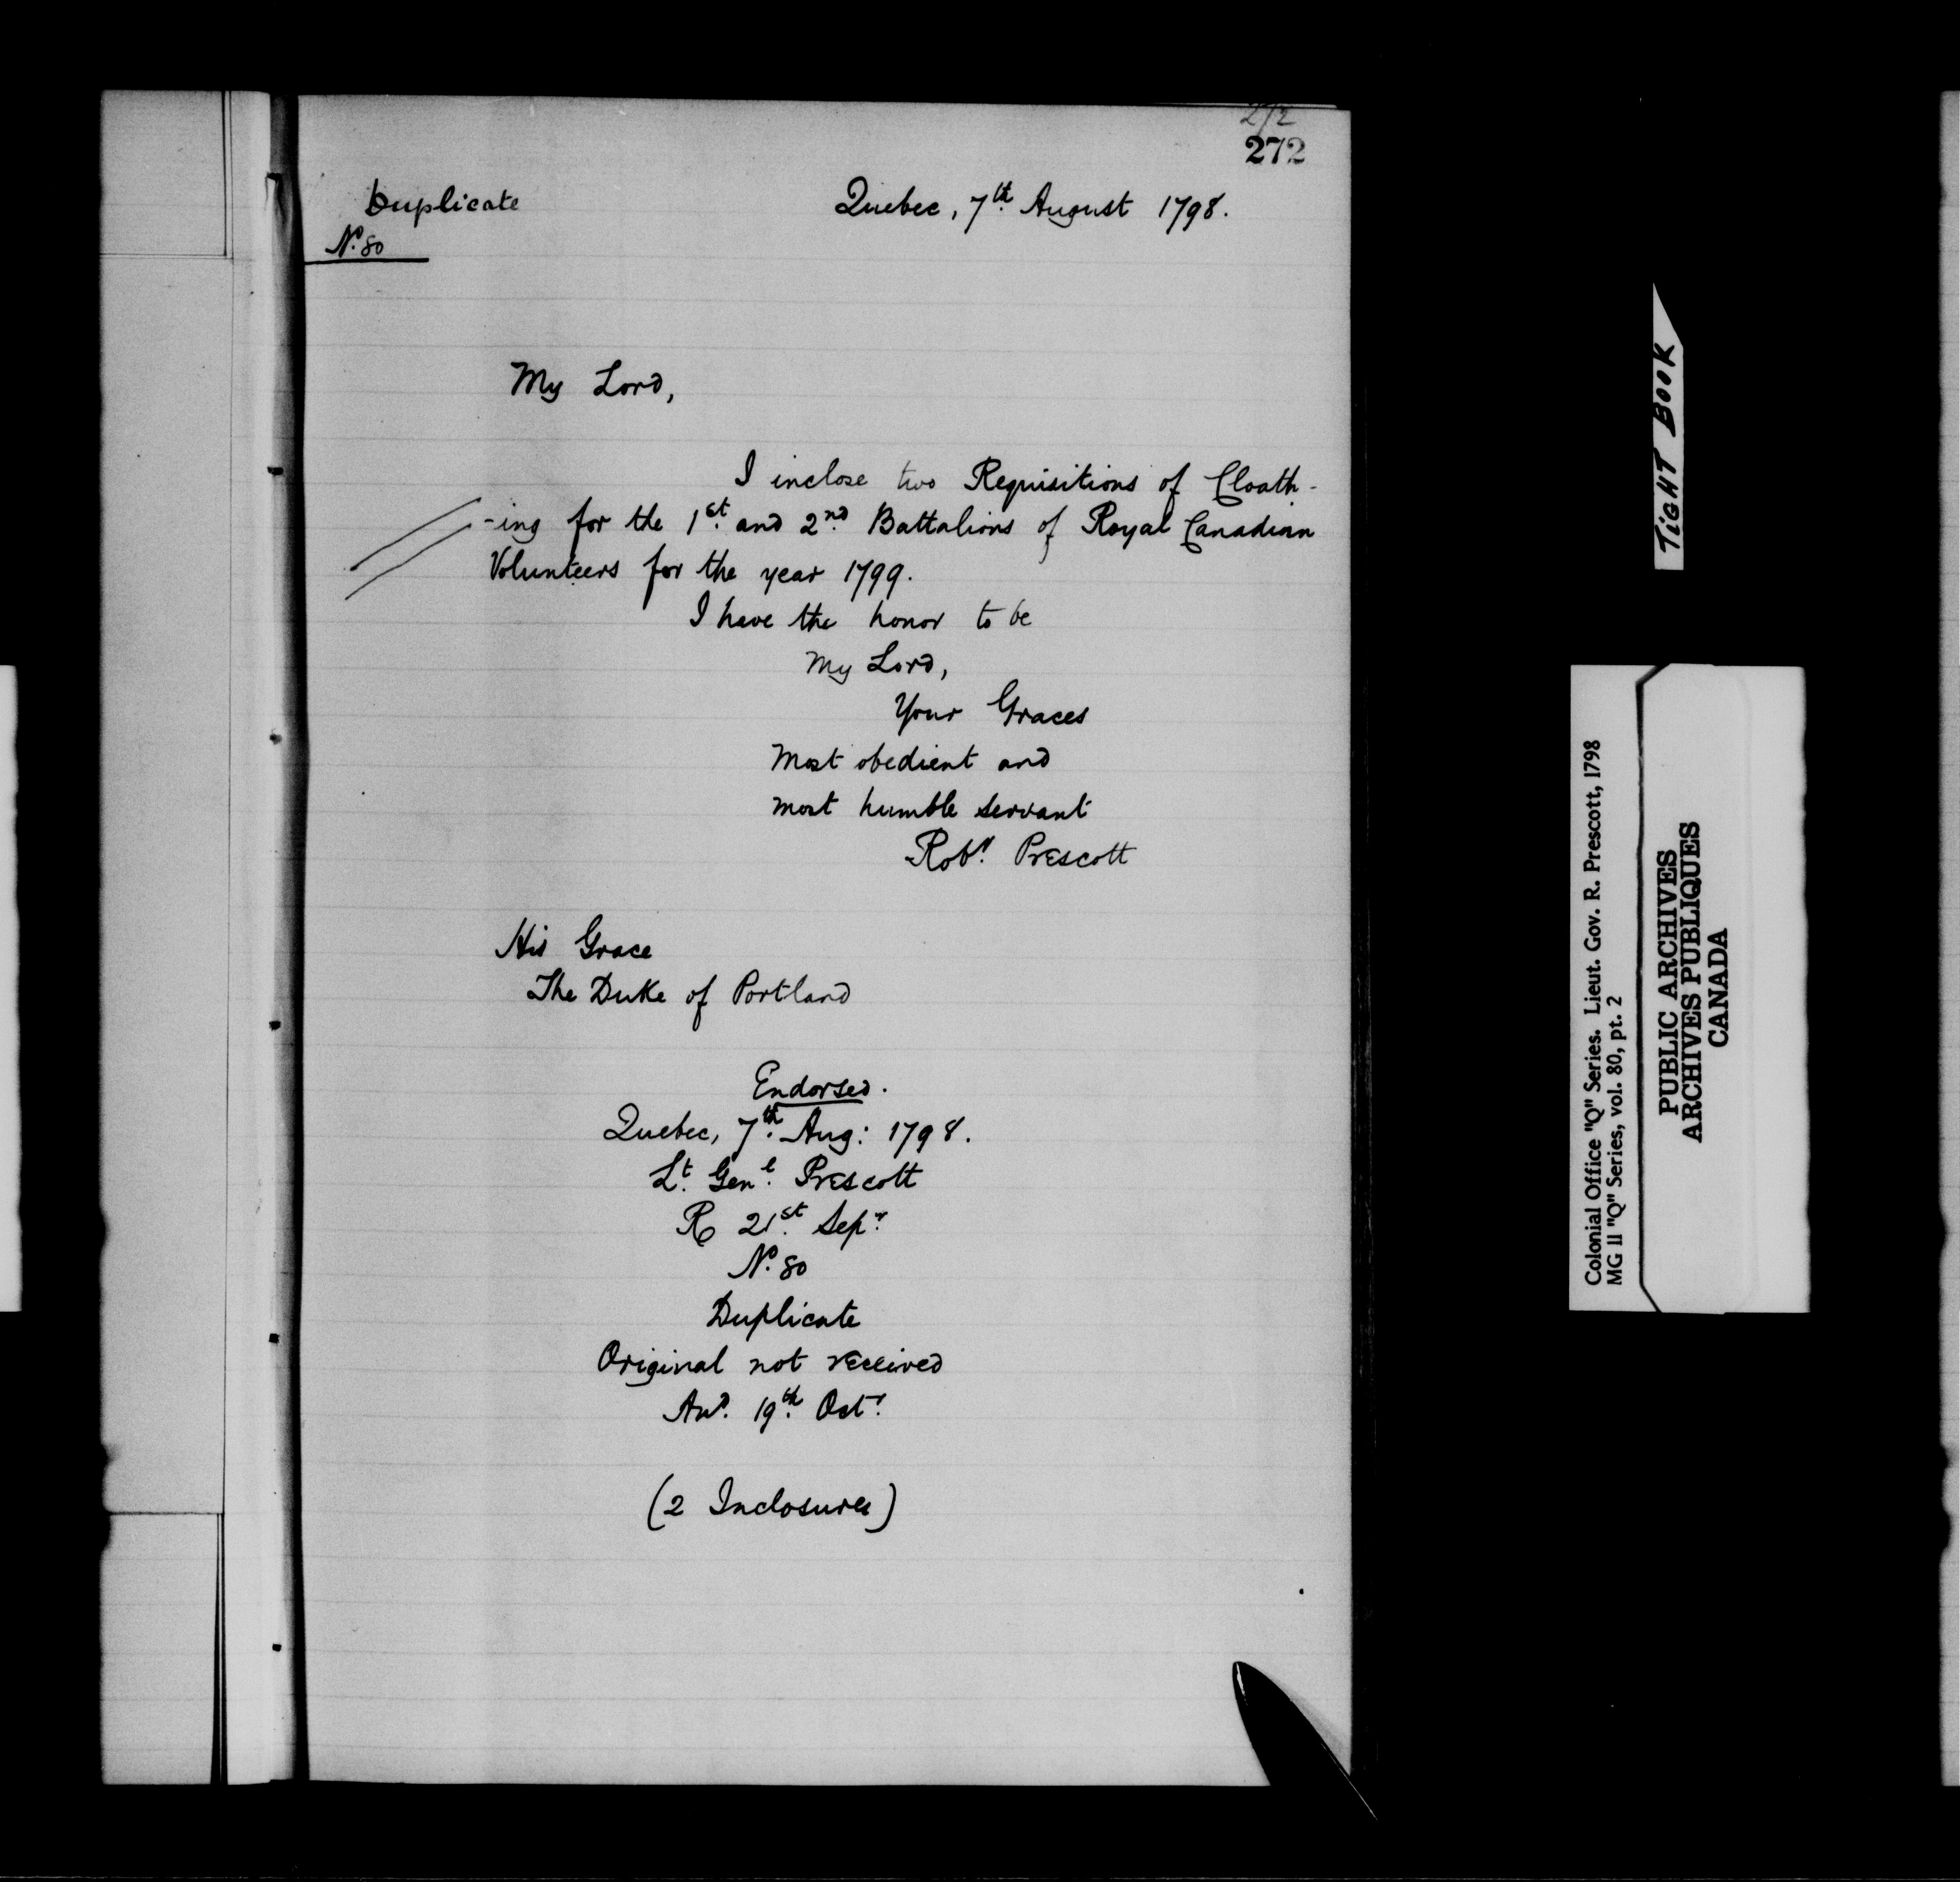 272
272
Duplicate
Quebec, 7th August 1798.
No. 80
My Lord,
I inclose two Requisitions of Cloath-
-ing for the 1st and 2nd Battalions of Royal Canadian
Volunteers for the year 1799.
I have the honor to be
My Lord,
Your Graces
Most obedient and
most humble servant
Robt. Prescott
His Grace
The Duke of Portland
Endorsed.
Quebec, 7th Aug: 1798.
Lt. Genl. Prescott
R 21st Sepr.
No. 80
Duplicate
Original not received
And. 19th Octr.
(2 Inclosures)
TIGHT BOOK
Colonial Office "Q" Series. Lieut. Gov. R. Prescott, 1798
MG 11 "Q" Series, vol. 80, pt. 2
PUBLIC ARCHIVES
ARCHIVES PUBLIQUES
CANADA